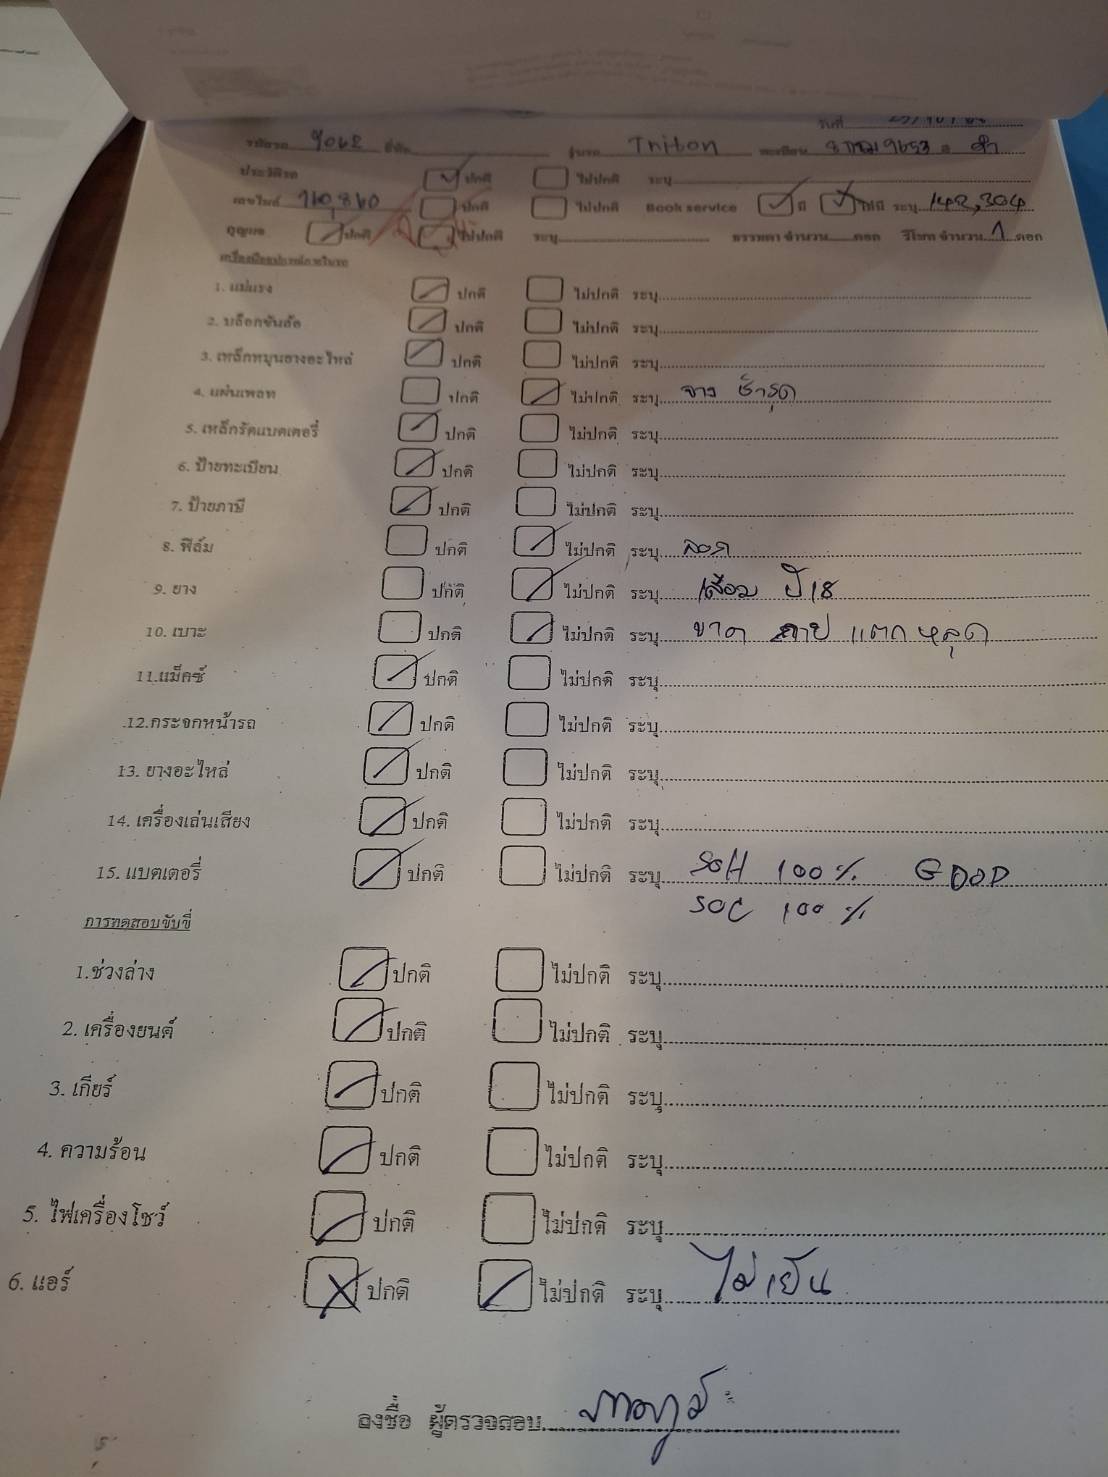 วันที่
รหัสรถ 9062 ยี่ห้อ รุ่นรถ Triton ทะเบียน สี ดำ
ประวัติรถ ปกติ ไม่ปกติ ระบุ
เลขไมล์ ปกติ ไม่ปกติ Book service มี ไม่มี ระบุ 142,304
กุญแจ ปกติ ไม่ปกติ ระบุ ธรรมดา จำนวน ดอก รีโมท จำนวน 1 ดอก
เครื่องมืออุปกรณ์ภายในรถ
1. แม่แรง ปกติ ไม่ปกติ ระบุ
2. บล็อกขันล้อ ปกติ ไม่ปกติ ระบุ
3. เหล็กหมุนยางอะไหล่ ปกติ ไม่ปกติ ระบุ
4. แผ่นเพลท ปกติ ไม่ปกติ ระบุ จาง ชำรุด
5. เหล็กรัดแบตเตอรี่ ปกติ ไม่ปกติ ระบุ
6. ป้ายทะเบียน ปกติ ไม่ปกติ ระบุ
7. ป้ายภาษี ปกติ ไม่ปกติ ระบุ
8. ฟิล์ม ปกติ ไม่ปกติ ระบุ ลอก
9. ยาง ปกติ ไม่ปกติ ระบุ เสื่อม ปี 18
10. เบาะ ปกติ ไม่ปกติ ระบุ ขาด ลาย แตก หลุด
11.แม็คซ์ ปกติ ไม่ปกติ ระบุ
12.กระจกหน้ารถ ปกติ ไม่ปกติ ระบุ
13. ยางอะไหล่ ปกติ ไม่ปกติ ระบุ
14. เครื่องเล่นเสียง ปกติ ไม่ปกติ ระบุ
15. แบตเตอรี่ ปกติ ไม่ปกติ ระบุ SOH 100 % GOOD
SOC 100 %
การทดสอบขับขี่
1.ช่วงล่าง ปกติ ไม่ปกติ ระบุ
2. เครื่องยนต์ ปกติ ไม่ปกติ ระบุ
3. เกียร์ ปกติ ไม่ปกติ ระบุ
4. ความร้อน ปกติ ไม่ปกติ ระบุ
5. ไฟเครื่องโชว์ ปกติ ไม่ปกติ ระบุ
6. แอร์ ปกติ ไม่ปกติ ระบุ ไม่เย็น
ลงชื่อ ผู้ตรวจสอบ